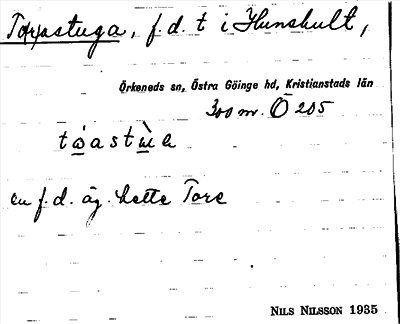 Torastuga, f.d. t i Hunshult,
Örkeneds sn, Östra Göinge hd, Kristianstads län
300 m. Ö 205
en f.d. äg. hette Tore
NILS NILSSON 1935